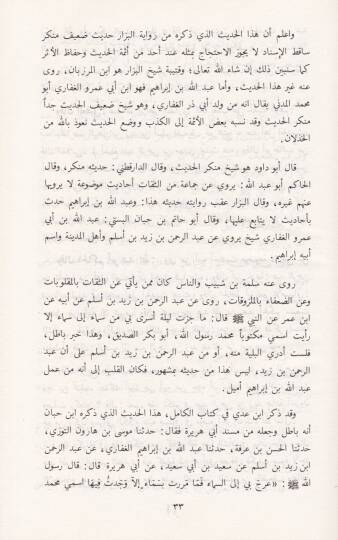 واعلم أن هذا الحديث الذي ذكره من رواية البزار حديث ضعيف منكر
ساقط الإسناد لا يجوز الاحتجاج بمثله عند أحد من أئمة الحديث وحفاظ الأثر
كما سنبين ذلك إن شاء الله تعالى؛ وقتيبة شيخ البزار هو ابن المرزبان، روى
عنه غير هذا الحديث، وأما عبد الله بن إبراهيم فهو ابن أبي عمرو الغفاري أبو
محمد المدني يقال انه من ولد أبي ذر الغفاري، وهو شيخ ضعيف الحديث جداً
منكر الحديث وقد نسبه بعض الأئمة إلى الكذب ووضع الحديث نعوذ بالله من
الخذلان.
قال أبو داود هو شيخ منكر الحديث، وقال الدارقطني: حديثه منكر، وقال
الحاكم أبو عبد الله: يروي عن جماعة من الثقات أحاديث موضوعة لا يرويها
عنهم غيره، وقال البزار عقب روايته حديثه هذا: وعبد الله بن إبراهيم حدث
بأحاديث لا يتابع عليها، وقال أبو حاتم بن حبان البستي: عبد الله بن أبي
عمرو الغفاري شيخ يروي عن عبد الرحمن بن زيد بن أسلم وأهل المدينة واسم
أبيه إبراهيم.
روى عنه سلمة بن شبيب والناس كان ممن يأتي عن الثقات بالمقلوبات
وعن الضعفاء بالملزوقات، روى عن عبد الرحمن بن زيد بن أسلم عن أبيه عن
ابن عمر عن النبي ﷺ قال: ما جزت ليلة أسرى بي من سماء إلى سماء إلا
رأيت اسمي مكتوباً محمد رسول الله، أبو بكر الصديق، وهذا خبر باطل،
فلست أدري البلية منه، أو من عبد الرحمن بن زيد بن أسلم على أن عبد
الرحمن بن زيد، ليس هذا من حديثه بمشهور، فكان القلب إلى أنه من عمل
عبد الله بن إبراهيم أميل.
وقد ذكر ابن عدي في كتاب الكامل، هذا الحديث الذي ذكره ابن حبان
أنه باطل وجعله من مسند أبي هريرة فقال: حدثنا موسى بن هارون التوزي،
حدثنا الحسن بن عرفة، حدثنا عبد الله بن إبراهيم الغفاري، عن عبد الرحمن
ابن زيد بن أسلم عن سعيد بن أبي سعيد، عن أبي هريرة قال: قال رسول
الله ﷺ: «عرج بي إلى السماء فما مررت بسماء إلا وَجَدتُ فيها اسمي محمد
٣٣